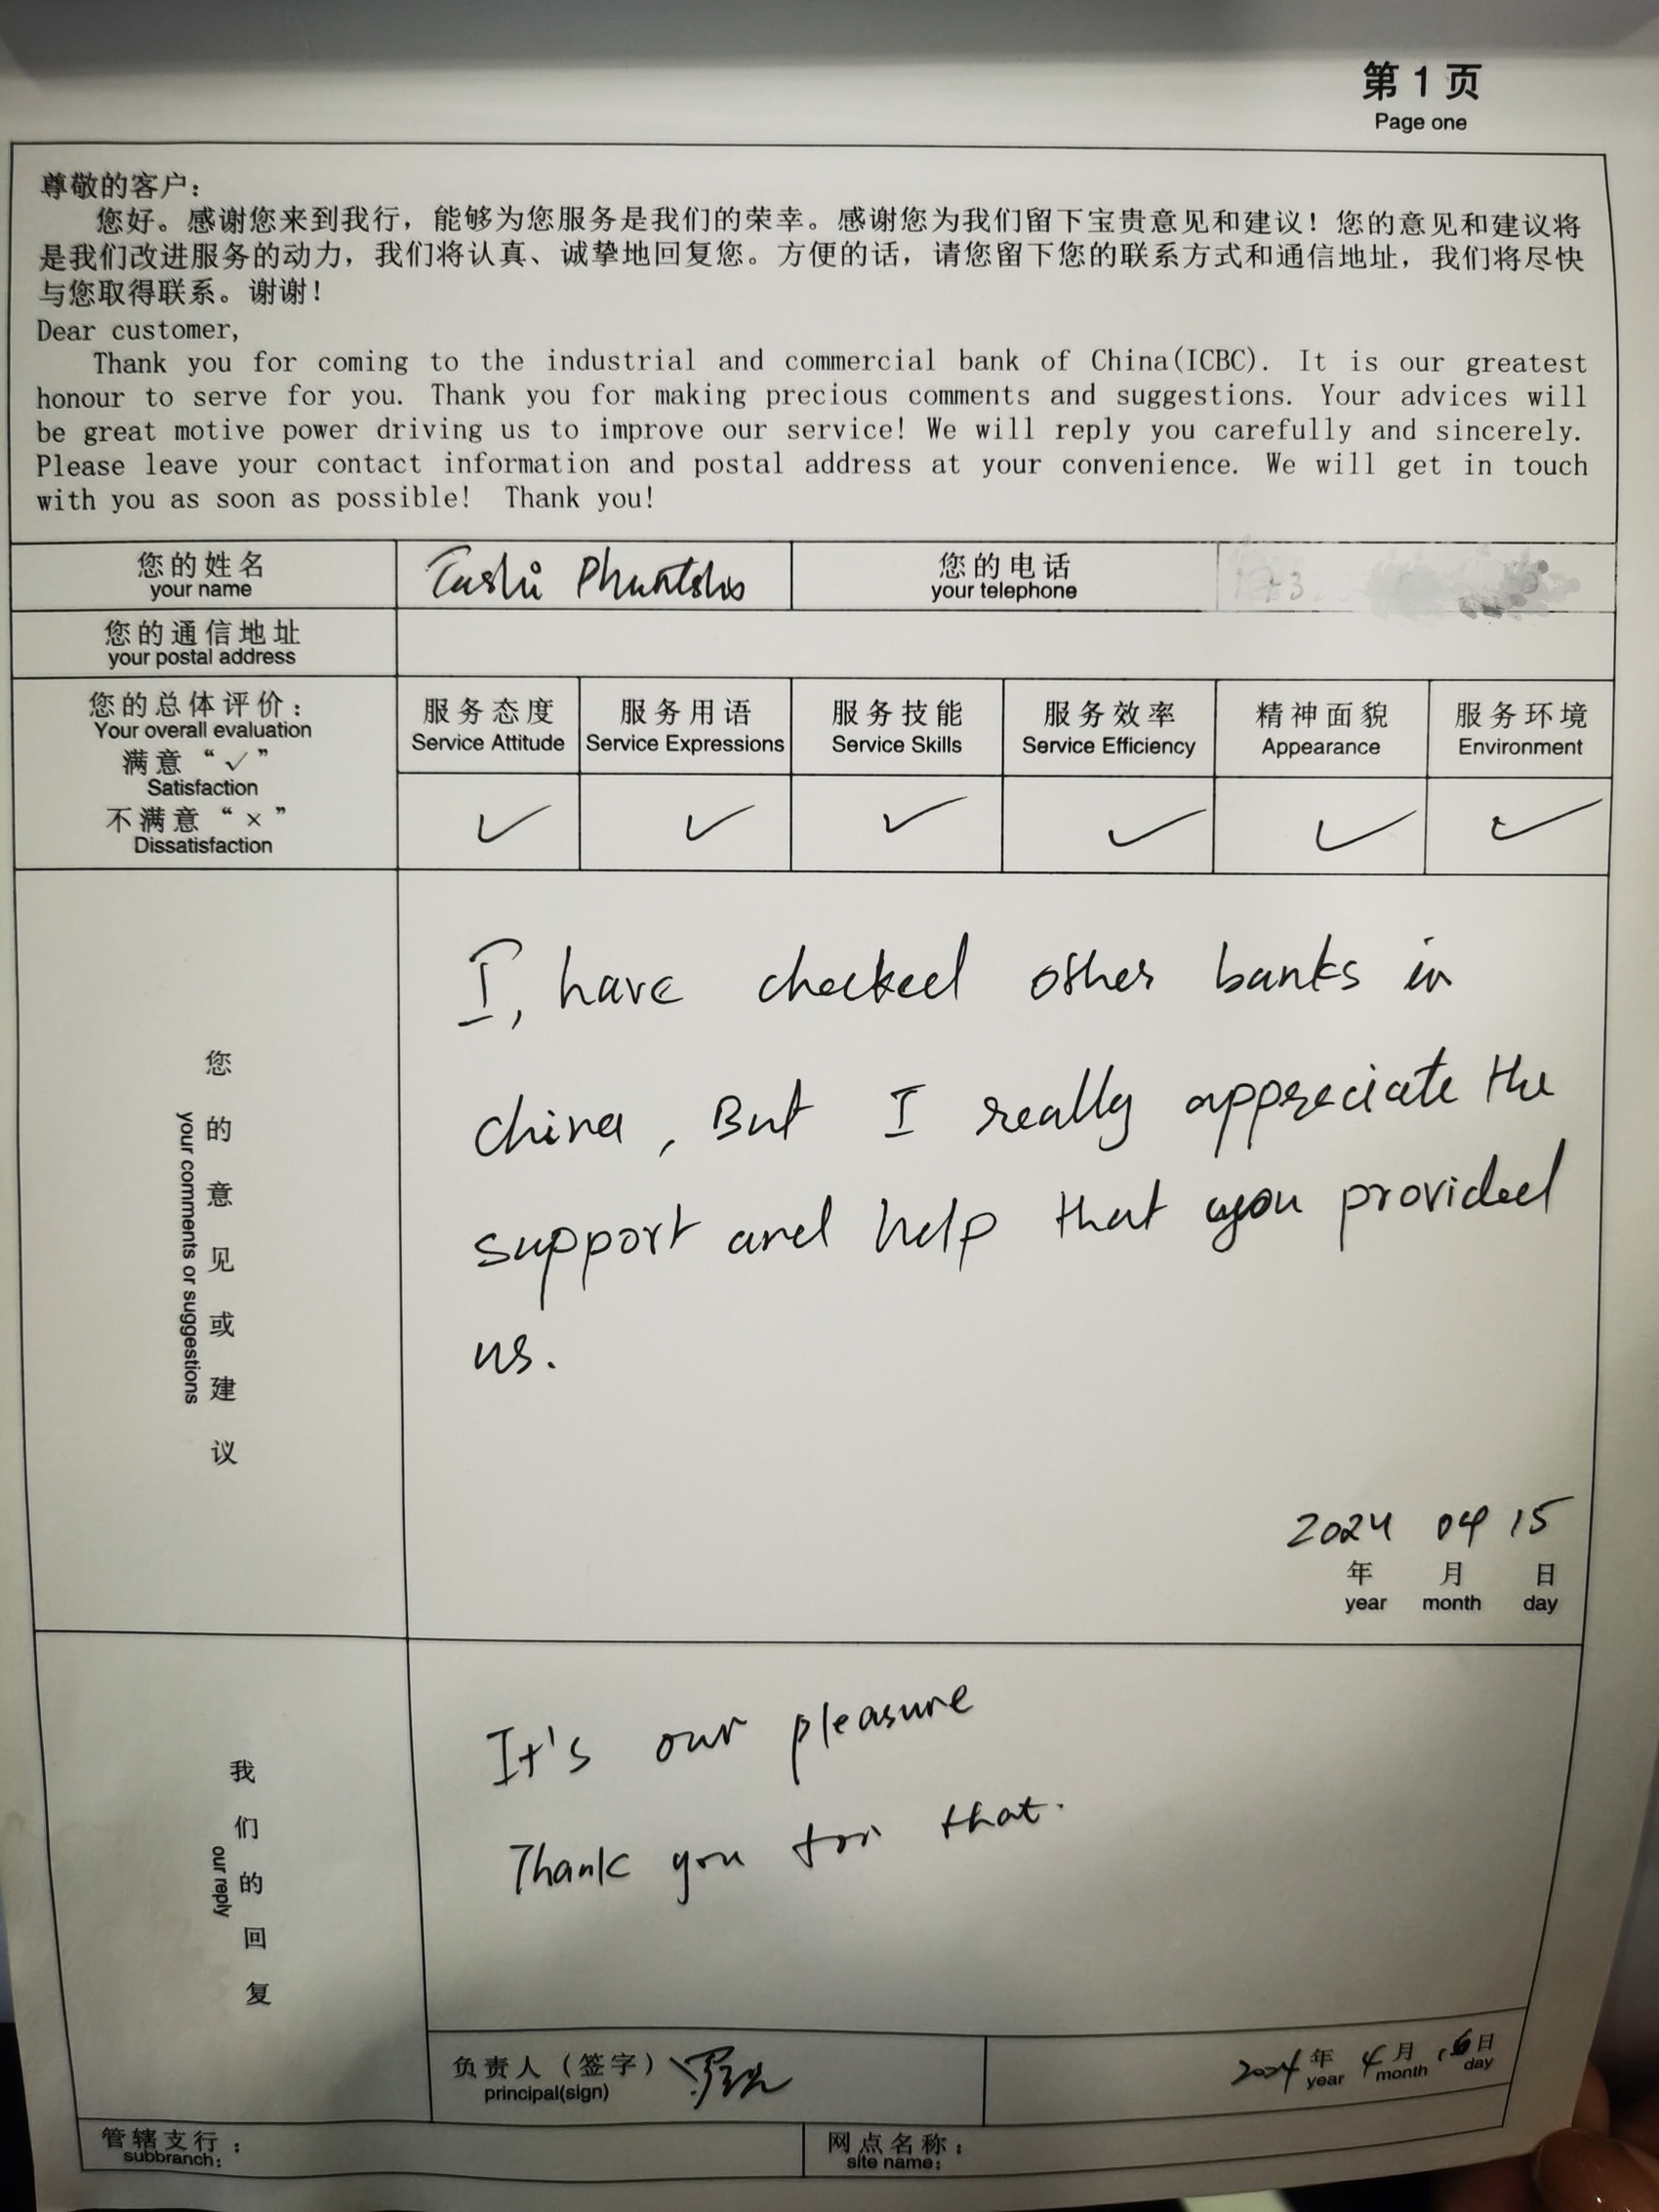 第1页
Page one
尊敬的客户：
您好。感谢您来到我行，能够为您服务是我们的荣幸。感谢您为我们留下宝贵意见和建议！您的意见和建议将
是我们改进服务的动力，我们将认真、诚挚地回复您。方便的话，请您留下您的联系方式和通信地址，我们将尽快
与您取得联系。谢谢！
Dear customer,
Thank you for coming to the industrial and commercial bank of China(ICBC). It is our greatest
honour to serve for you. Thank you for making precious comments and suggestions. Your advices will
be great motive power driving us to improve our service! We will reply you carefully and sincerely.
Please leave your contact information and postal address at your convenience. We will get in touch
with you as soon as possible! Thank you!
您的姓名
your name
Tashi Phuntsho
您的电话
your telephone
您的通信地址
your postal address
您的总体评价：
Your overall evaluation
满意“✓”
Satisfaction
不满意“×”
Dissatisfaction
服务态度
Service Attitude
服务用语
Service Expressions
服务技能
Service Skills
服务效率
Service Efficiency
精神面貌
Appearance
服务环境
Environment
✓ ✓ ✓ ✓ ✓ ✓
您的意见或建议
your comments or suggestions
I, have checked other banks in
china, But I really appreciate the
support and help that you provided
us.
2024 04 15
年 月 日
year month day
我们的回复
our reply
It's our pleasure
Thank you for that.
负责人（签字）
principal(sign)
2024年 4月 16日
year month day
管辖支行：
subbranch:
网点名称：
site name: